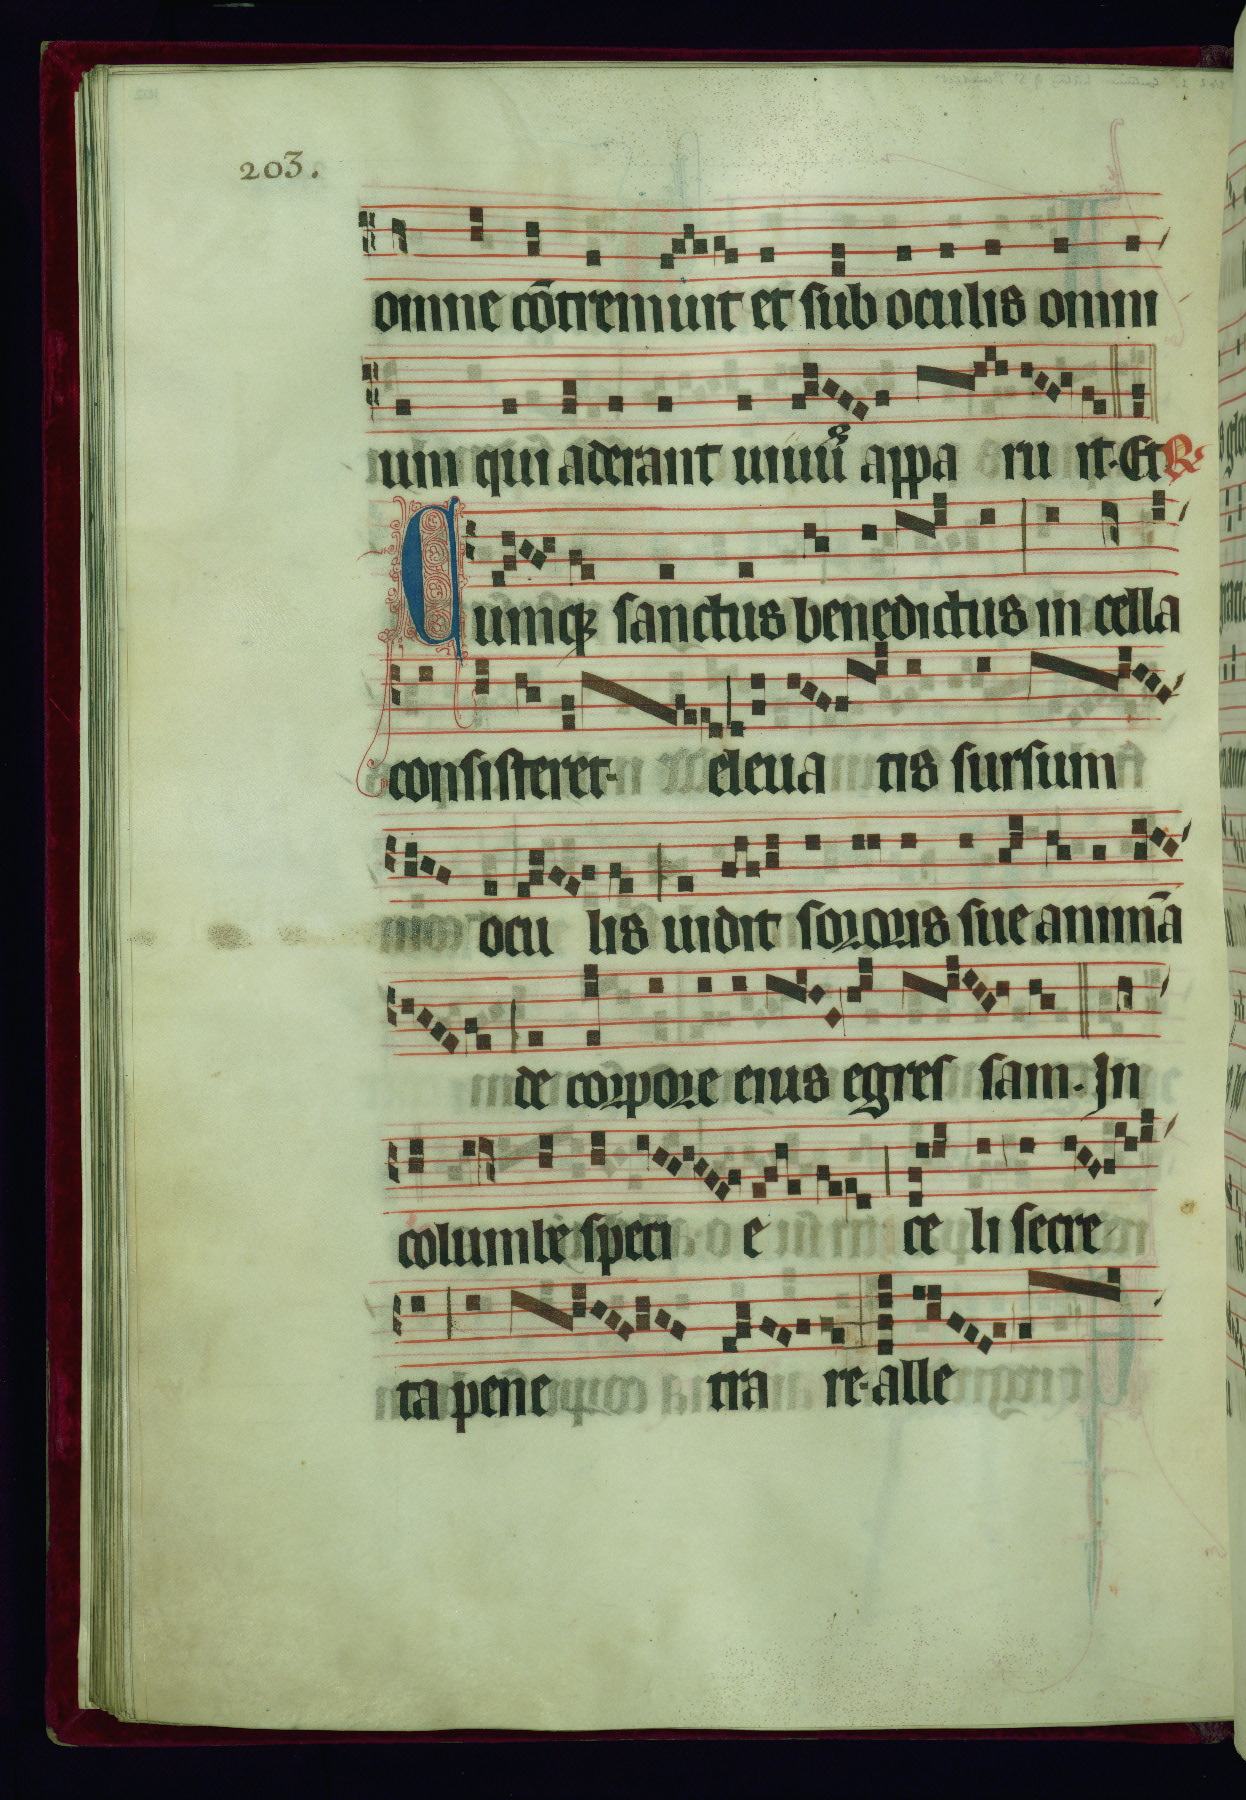 203.
omne cōtremuit et sub oculis omni
um qui aderant uiuū appa ru it. Et R
Cumqꝫ sanctus benedictus in cella
consisteret. eleua tis sursum
ocu lis uidit sororis sue animā
de corpore eius egres sam. In
columbe speci e ce li secre
ta pene tra re. alle